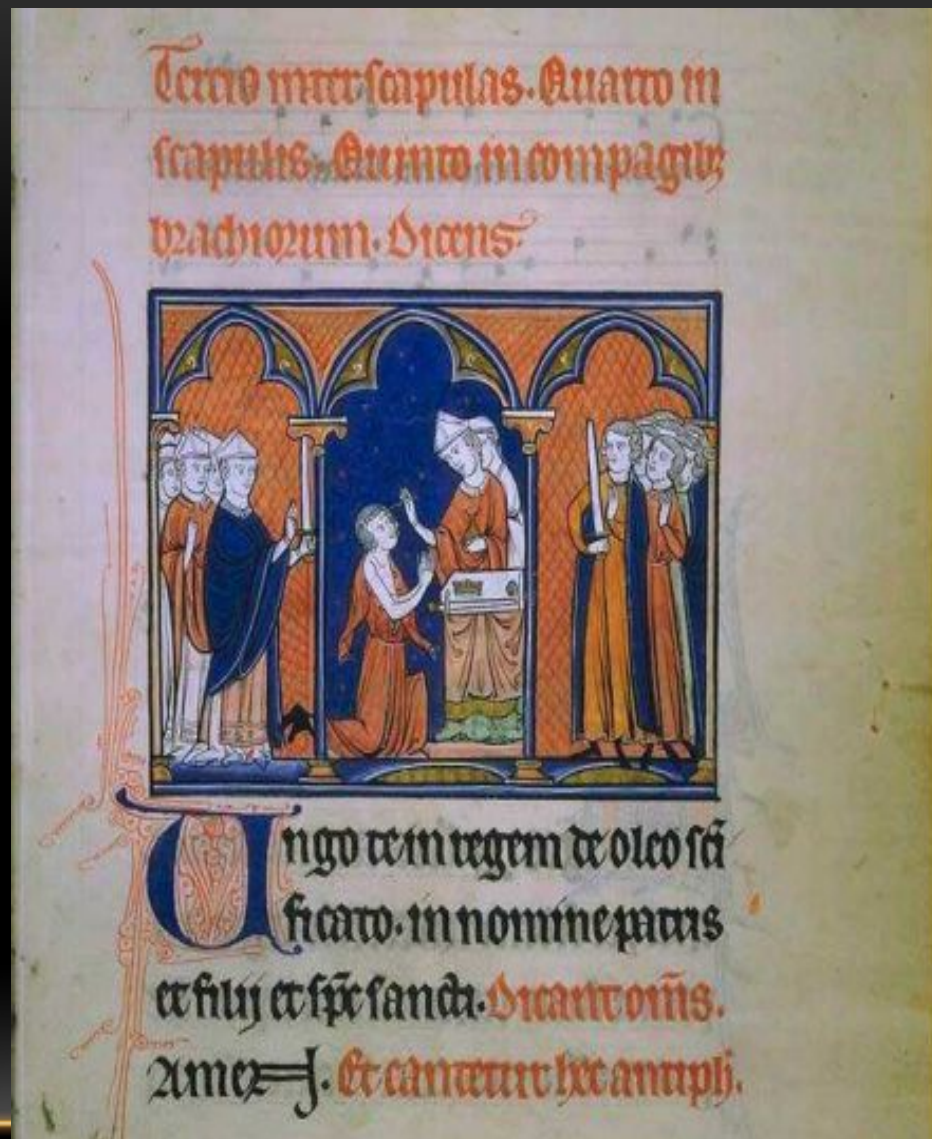 Tercio inter scapulas. Quarto in
scapulis. Quinto in compagib;
brachiorum. Dicens.
Ungo te in regem de oleo sc̃i
ficato. in nomine patris
et filij et sp̃c sancti. Dicant om̃s.
Amen. Et cantetur hec antiph̃.